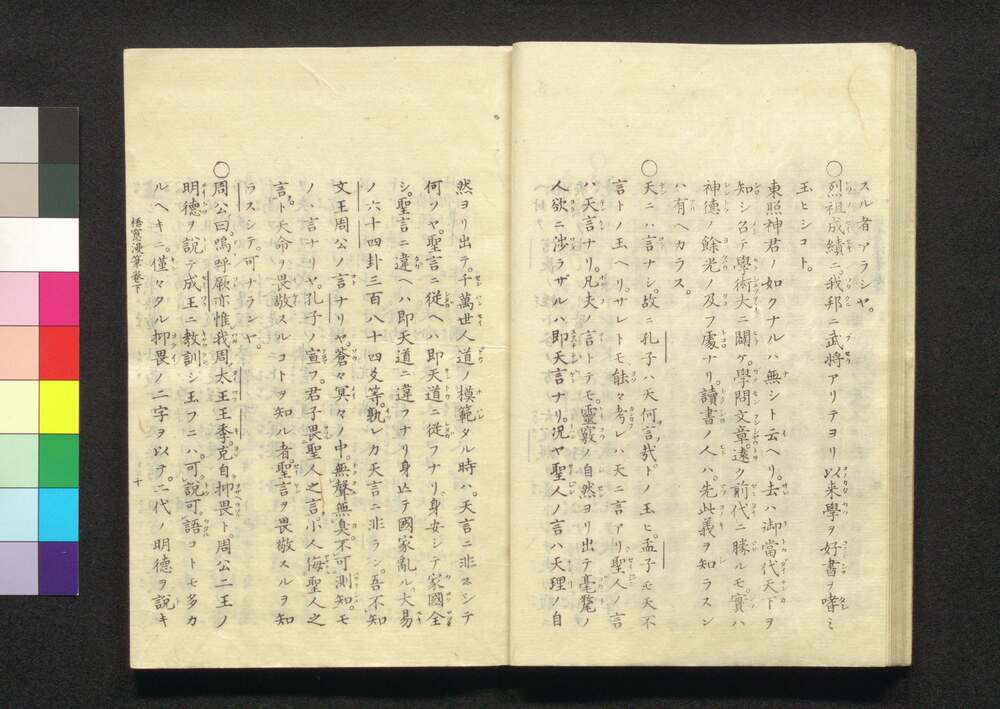 スル者アランヤ。
○烈祖成績ニ。我邦ニ武将アリテヨリ以来學ヲ好書ヲ嗜ミ
玉ヒシコト。
東照神君ノ如クナルハ無シト云ヘリ。去ハ御當代天下ヲ
知シ召テ學術大ニ闢ケ。學問文章。遠ク前代ニ勝ルモ。實ハ
神徳ノ餘光ノ及フ處ナリ。讀書ノ人ハ。先此義ヲ知ラスン
ハ有ヘカラス。
○天ニハ言ナシ。故ニ孔子ハ天何言哉ト。ノ玉ヒ。孟子モ天不
言トノ玉ヘリ。サレトモ能々考レハ天ニ言アリ。聖人ノ言
ハ天言ナリ。凡夫ノ言トテモ。靈竅ノ自然ヨリ出テ毫髦ノ
人欲ニ渉ラザルハ即天言ナリ。況ヤ聖人ノ言ハ天理ノ自
然ヨリ出テ。千萬世人道ノ模範タル時ハ。天言ニ非スシテ
何ソヤ。聖言ニ從ヘハ即天道ニ從フナリ。身安シテ家國全
シ。聖言ニ違ヘハ即天道ニ違フナリ。身亡テ國家亂ル。大易
ノ六十四卦三百八十四爻等。孰レカ天言ニ非ラン。吾不知
文王周公ノ言ナリヤ。蒼々冥々ノ中。無聲無臭。不可測知。モ
ノヽ言ナリヤ。孔子ノ宣フ。君子畏聖人之言。小人侮聖人之
言。ト天命ヲ畏敬スルコトヲ知ル者。聖言ヲ畏敬スルヲ知
ラスシテ。可ナランヤ。
○周公。曰。嗚呼厥亦惟我周。太王王季。克自抑畏ト。周公二王ノ
明徳ヲ説テ成王ニ教訓シ玉フニハ。可説可語コトモ多カ
ルヘキニ。僅々タル抑畏ノ二字ヲ以テ。二代ノ明徳ヲ説キ
梧窓漫筆巻下
十